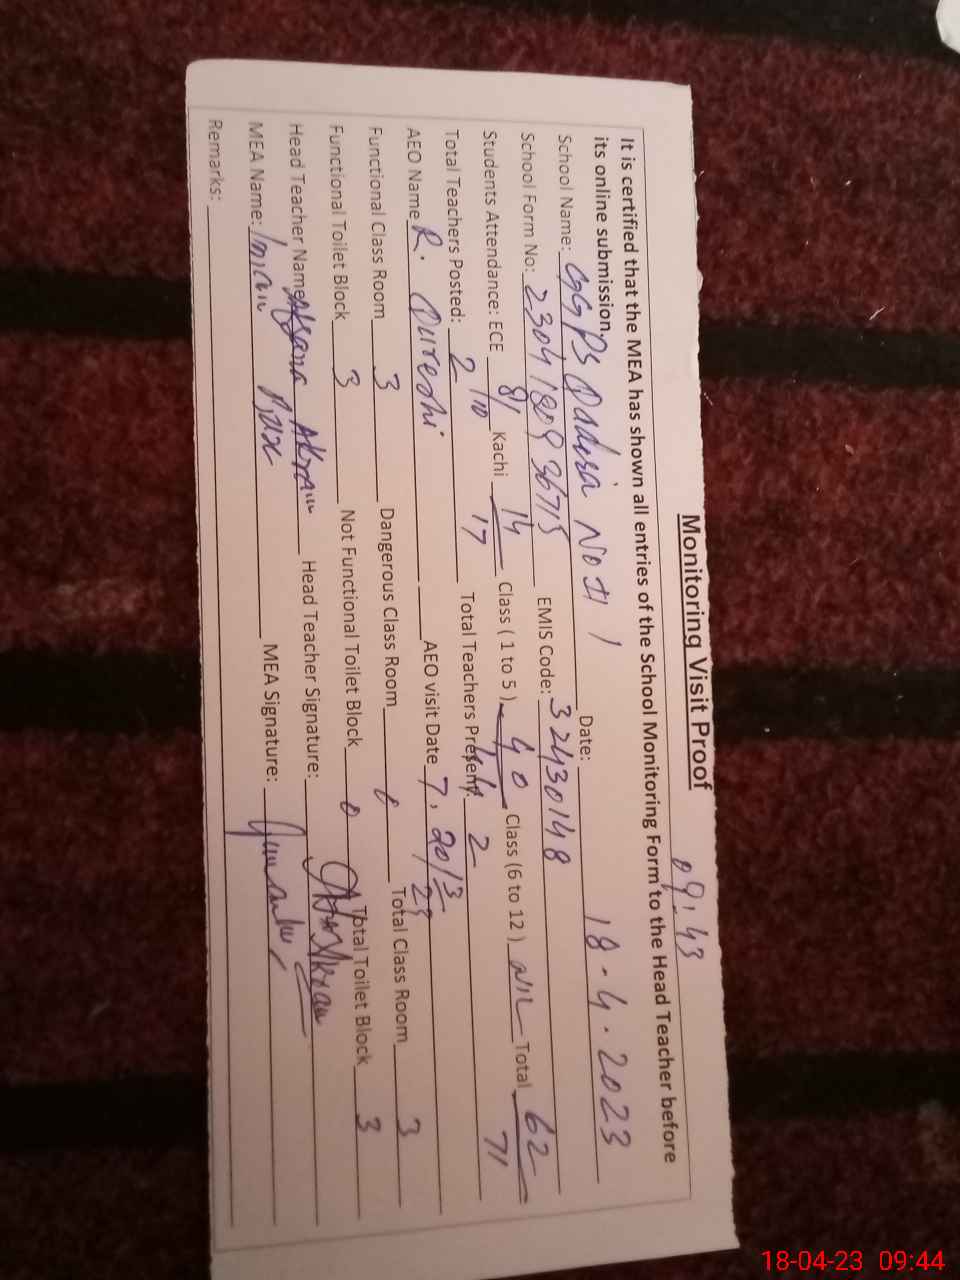 Monitoring Visit Proof 09:43
It is certified that the MEA has shown all entries of the School Monitoring Form to the Head Teacher before
its online submission.
School Name: GGPS Dadera No II Date: 18-4-2023
School Form No: 2304180936715 EMIS Code: 32430148
Students Attendance: ECE 8/10 Kachi 14/17 Class (1 to 5) 40/44 Class (6 to 12) NIL Total 62/71
Total Teachers Posted: 2 Total Teachers Present: 2
AEO Name R. Qureshi AEO visit Date 7, 20/3/23
Functional Class Room 3 Dangerous Class Room 0 Total Class Room 3
Functional Toilet Block 3 Not Functional Toilet Block 0 Total Toilet Block 3
Head Teacher Name Afsana Akram Head Teacher Signature:
MEA Name: Imran MEA Signature:
Remarks:
18-04-23 09:44